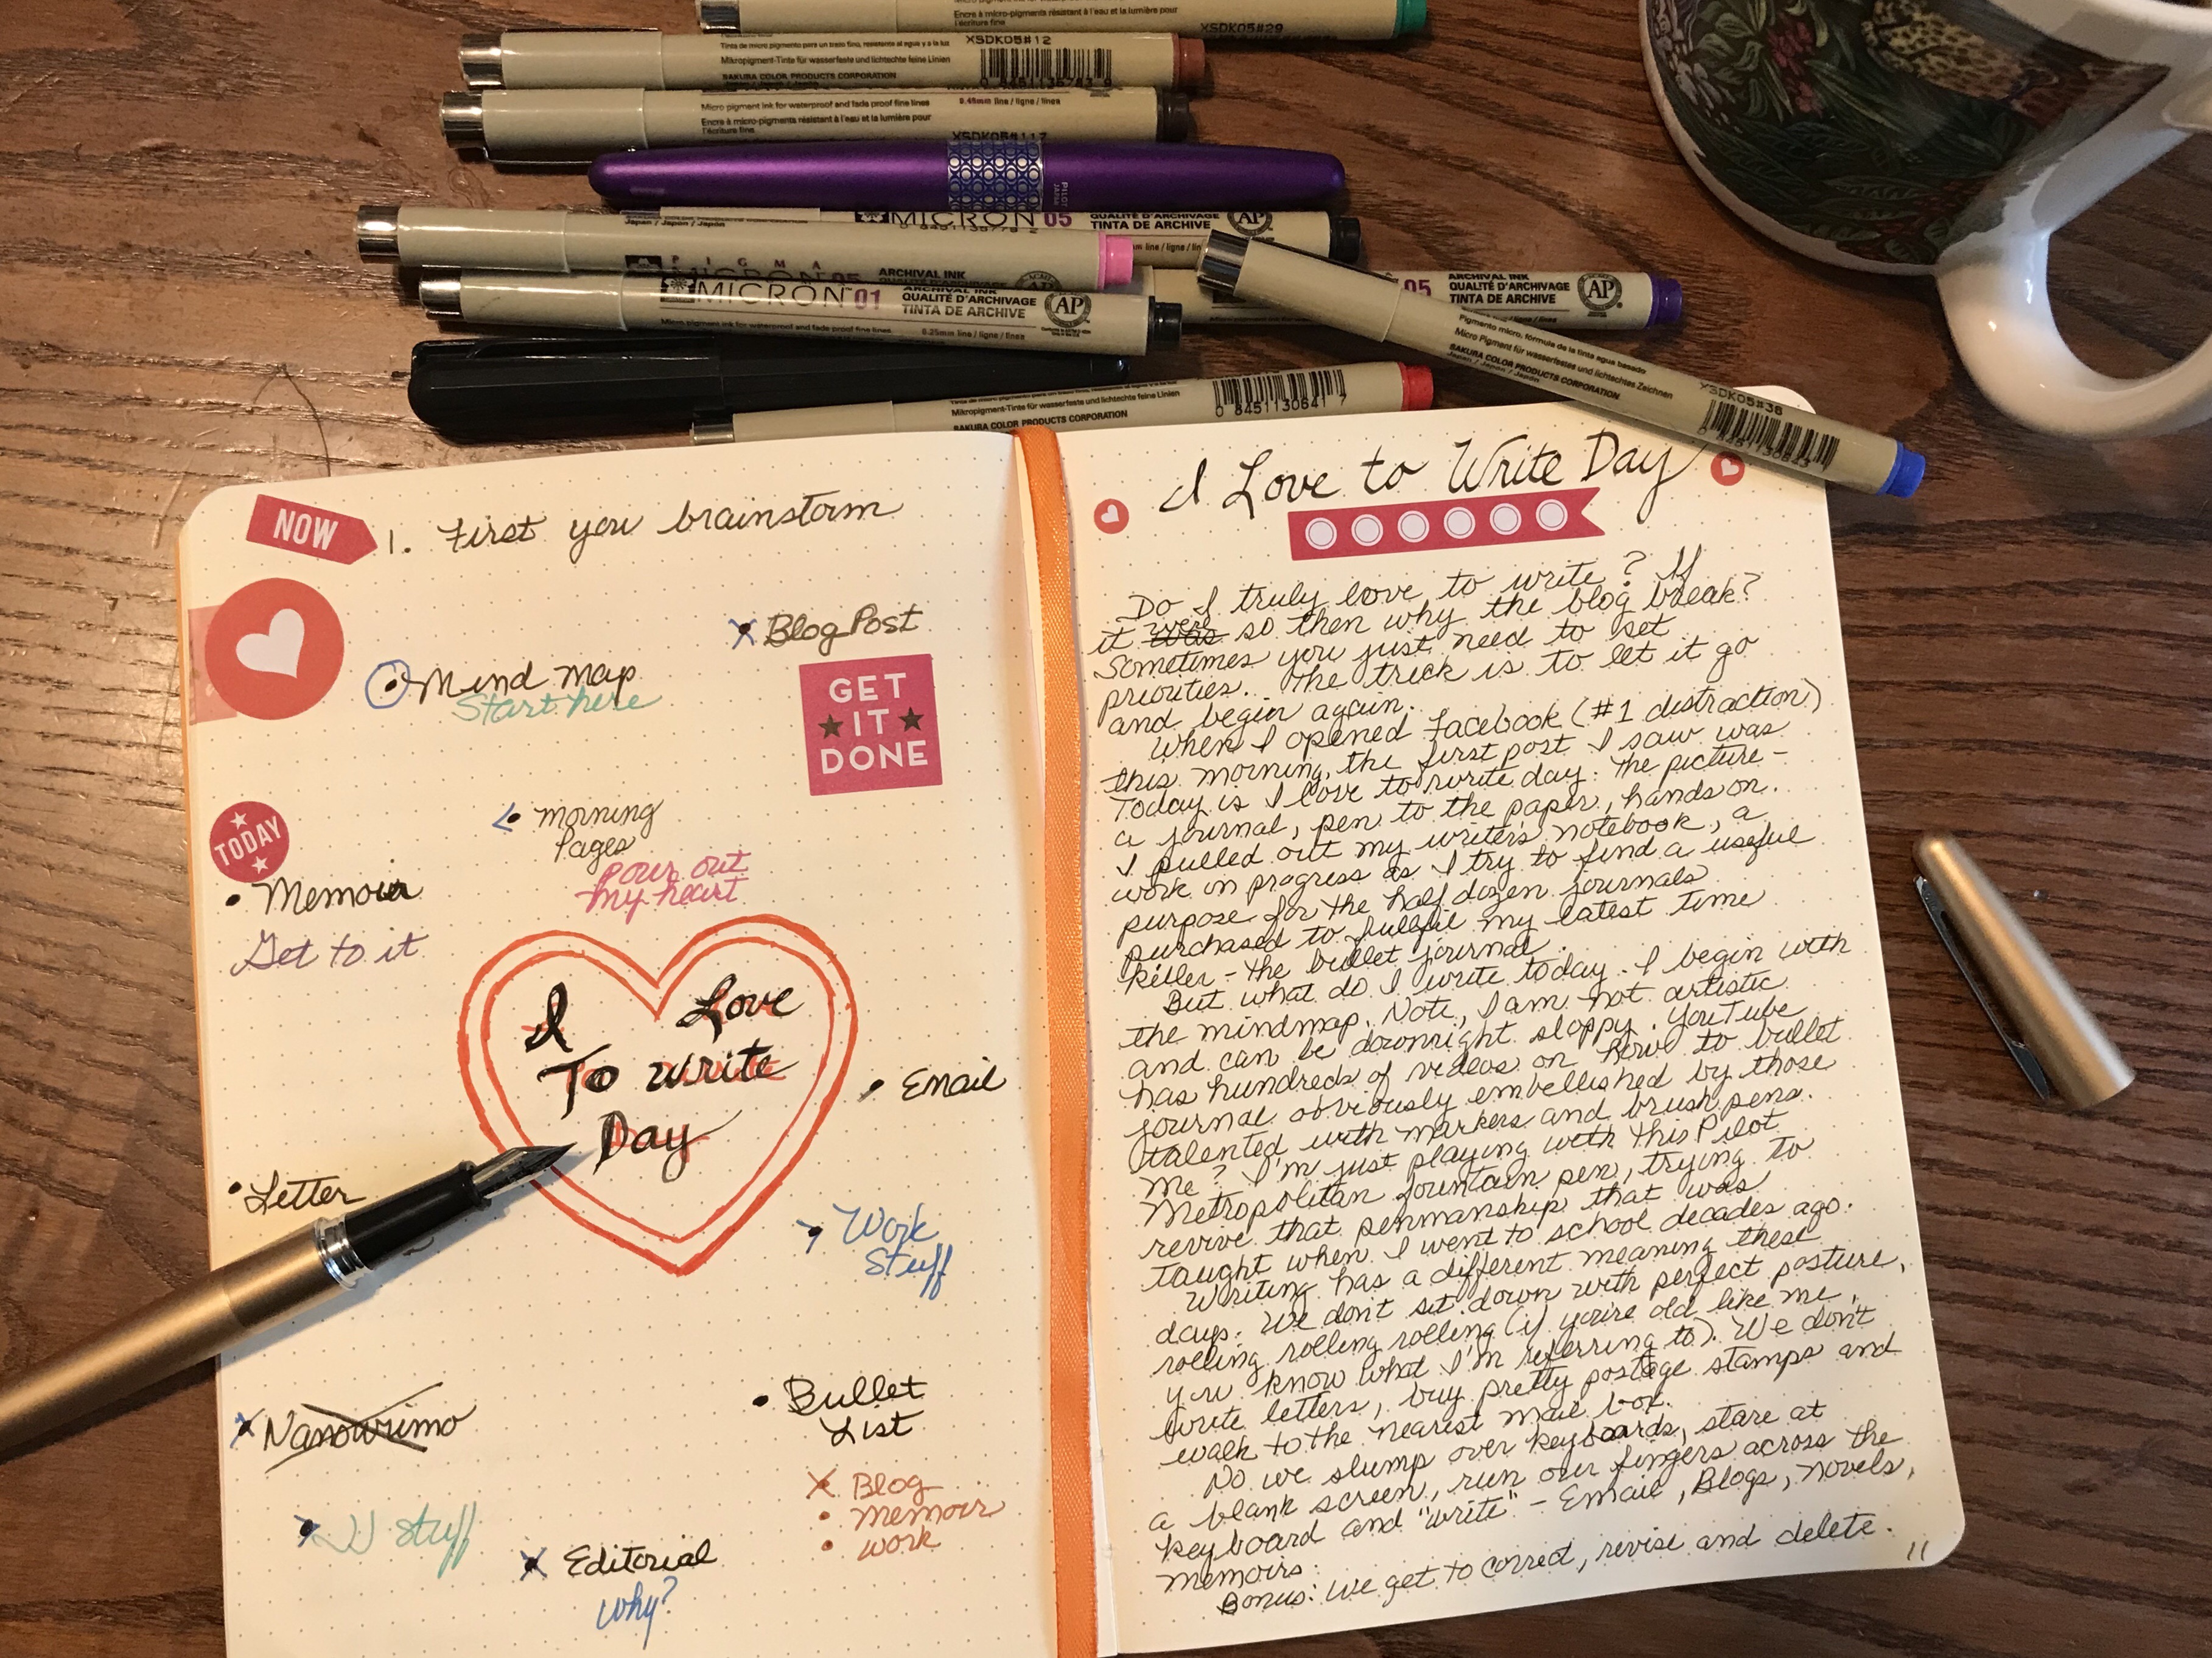 Micro pigment ink for waterproof and fade proof fine lines
Encre à micro-pigments résistant à l'eau et la lumière pour
l'écriture fine
XSDK05#29
Tinta de micro pigmento para un trazo fino, resistente al agua y a la luz
Mikropigment-Tinte für wasserfeste und lichtechte feine Linien
SAKURA COLOR PRODUCTS CORPORATION
XSDK05#12
Micro pigment ink for waterproof and fade proof fine lines
0.45mm line / ligne / linea
Encre à micro-pigments résistant à l'eau et la lumière pour
l'écriture fine
XSDK05#117
PILOT
JAPAN
Japan / Japon / Japón
MICRON 05
QUALITÉ D'ARCHIVAGE
TINTA DE ARCHIVE
AP
mm line / ligne / linea
PIGMA
MICRON 05
ARCHIVAL INK
MICRON 01
ARCHIVAL INK
QUALITÉ D'ARCHIVAGE
TINTA DE ARCHIVE
AP
Micro pigment ink for waterproof and fade proof fine lines
0.25mm line / ligne / linea
05
ARCHIVAL INK
QUALITÉ D'ARCHIVAGE
TINTA DE ARCHIVE
AP
Pigmento micro, fórmula de la tinta agua basado
Micro Pigment für wasserfestes und lichtechtes Zeichnen
SAKURA COLOR PRODUCTS CORPORATION
Japan / Japon / Japón
XSDK05#36
Mikropigment-Tinte für wasserfeste und lichtechte feine Linien
SAKURA COLOR PRODUCTS CORPORATION
0 84511 30641 7
NOW
1. First you brainstorm
Blog Post
Mind Map
Start here
GET
IT
DONE
TODAY
Morning
Pages
pour out
my heart
Memoir
Get to it
I Love
To Write
Day
Email
Letter
Work
Stuff
Nanowrimo
Bullet
List
Blog
Memoir
work
stuff
Editorial
why?
I Love to Write Day
Do I truly love to write? If
it were was so then why the blog break?
Sometimes you just need to set
priorities. The trick is to let it go
and begin again.
When I opened Facebook (#1 distraction)
this morning, the first post I saw was
Today is I love to write day. The picture -
a journal, pen to the paper, hands on.
I pulled out my writer's notebook, a
work in progress as I try to find a useful
purpose for the half dozen journals
purchased to fulfill my latest time
killer - the bullet journal.
But what do I write today. I begin with
the mindmap. Note, I am not artistic
and can be downright sloppy. YouTube
has hundreds of videos on how to bullet
journal obviously embellished by those
talented with markers and brush pens.
Me? I'm just playing with this Pilot
Metropolitan fountain pen, trying to
revive that penmanship that was
taught when I went to school decades ago.
Writing has a different meaning these
days. We don't sit down with perfect posture,
rolling rolling rolling (if you're old like me,
you know what I'm referring to). We don't
write letters, buy pretty postage stamps and
walk to the nearest mail box.
No we slump over keyboards, stare at
a blank screen, run our fingers across the
keyboard and "write" - Email, Blogs, novels,
memoirs.
Bonus: we get to correct, revise and delete.
11